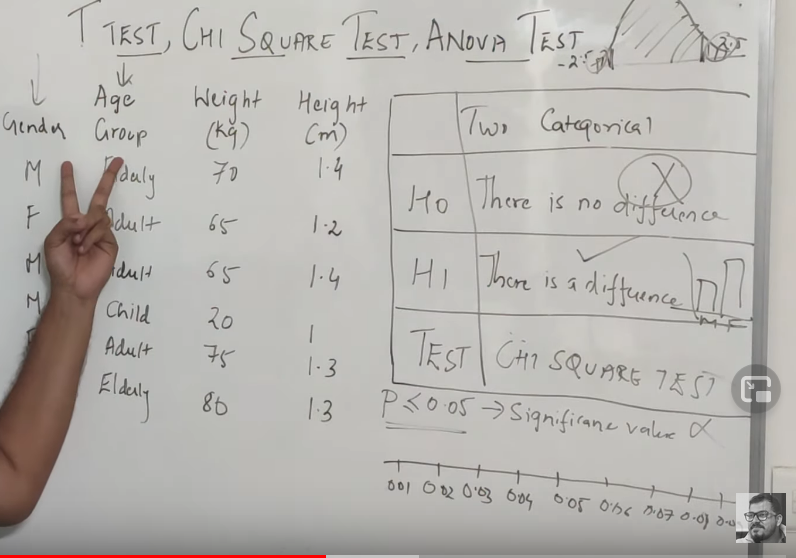 T TEST, CHI SQUARE TEST, ANOVA TEST
Gender
Age Group
Weight (Kg)
Height (m)
M 70 1.4
F 65 1.2
M 65 1.4
M Child 20 1
Adult 75 1.3
Elderly 80 1.3
Two Categorical
H0 There is no difference
H1 There is a difference
M F
TEST CHI SQUARE TEST
P ≤ 0.05 → Significane value α
0.02 0.03 0.04 0.05 0.06 0.07